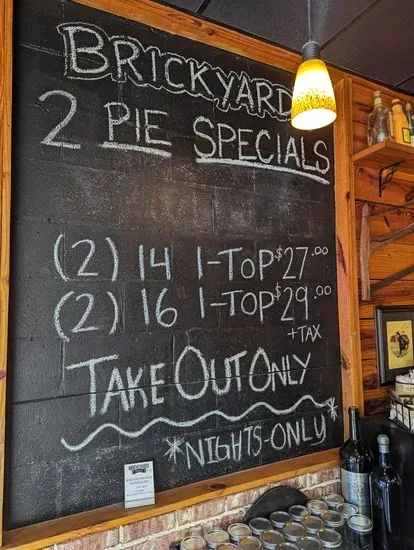 BRICKYARD
2 PIE SPECIALS
(2) 14 1-TOP $27.00
(2) 16 1-TOP $29.00
+TAX
TAKE OUT ONLY
*NIGHTS-ONLY*
BRICKYARD